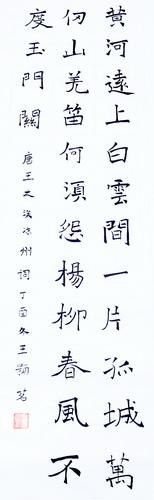 黃河遠上白雲間一片孤城萬
仞山羌笛何湏怨楊柳春風不
度玉門關
唐王之渙凉州詞丁酉冬王